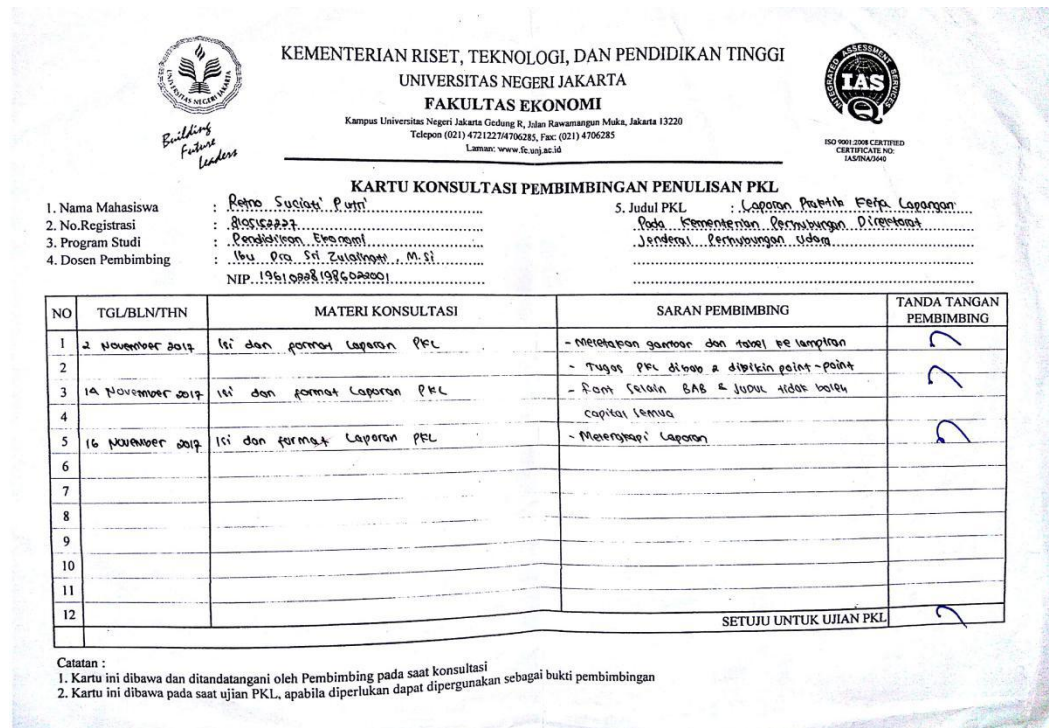 KEMENTERIAN RISET, TEKNOLOGI, DAN PENDIDIKAN TINGGI
UNIVERSITAS NEGERI JAKARTA
FAKULTAS EKONOMI
Kampus Universitas Negeri Jakarta Gedung R, Jalan Rawamangun Muka, Jakarta 13220
Telepon (021) 4721227/4706285, Fax: (021) 4706285
Laman: www.fe.unj.ac.id
UNIVERSITAS NEGERI JAKARTA
Building
Future
Leaders
INTEGRATED ASSESSMENT SERVICES
IAS
Q
ISO 9001:2008 CERTIFIED
CERTIFICATE NO:
IAS/INA/3640
KARTU KONSULTASI PEMBIMBINGAN PENULISAN PKL
1. Nama Mahasiswa : Retno Suciati Putri
2. No.Registrasi : 8105152227
3. Program Studi : Pendidikan Ekonomi
4. Dosen Pembimbing : Ibu Dra Sri Zulaihati, M.Si
NIP. 196102281986022001
5. Judul PKL : Laporan Praktik Kerja Lapangan
Pada Kementerian Perhubungan Direktorat
Jenderal Perhubungan Udara
NO TGL/BLN/THN MATERI KONSULTASI SARAN PEMBIMBING TANDA TANGAN PEMBIMBING
1 2 November 2017 Isi dan format Laporan PKL - Meletakan gambar dan tabel ke lampiran
2 - Tugas PKL dibab 2 dibikin point-point
3 14 November 2017 Isi dan format Laporan PKL - Font selain BAB & JUDUL tidak boleh
4 capital semua
5 16 November 2017 Isi dan format Laporan PKL - Melengkapi Laporan
6
7
8
9
10
11
12 SETUJU UNTUK UJIAN PKL
Catatan :
1. Kartu ini dibawa dan ditandatangani oleh Pembimbing pada saat konsultasi
2. Kartu ini dibawa pada saat ujian PKL, apabila diperlukan dapat dipergunakan sebagai bukti pembimbingan